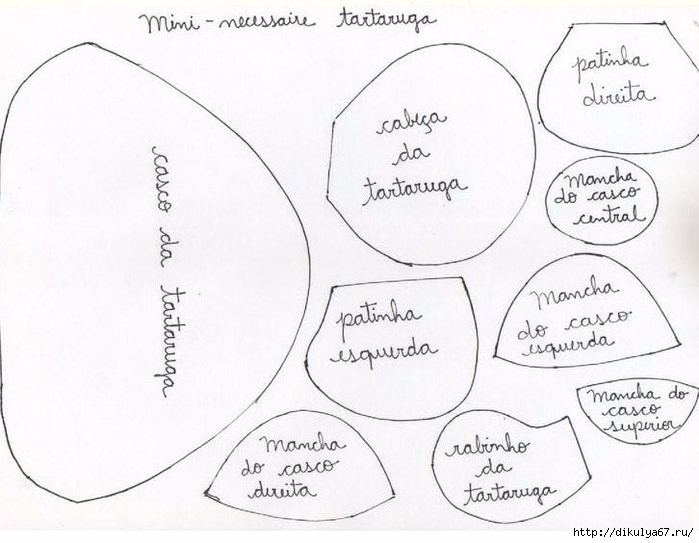 Mini-necessaire tartaruga
casco da tartaruga
cabeça
da
tartaruga
patinha
direita
Mancha
do casco
central
patinha
esquerda
Mancha
do casco
esquerda
Mancha do
casco
superior
Mancha
do casco
direita
rabinho
da
tartaruga
http://dikulya67.ru/